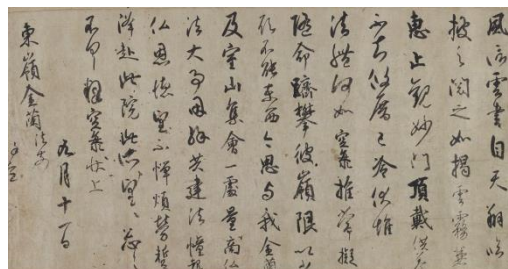 風信雲書自天翔臨
披之閲之如揭雲霧兼
恵止觀妙門頂戴供養
不知攸厝已冷伏惟
法體何如空海推常擬
隨命躋攀彼嶺限以少
願不能東西今思与我金蘭
及室山集會一處量商仏
法大事因縁共建法幢報
仏恩徳望不憚煩勞蹔
降赴此院此所望々忩々
不具釋空海状上
九月十一日
東嶺金蘭法前
謹空